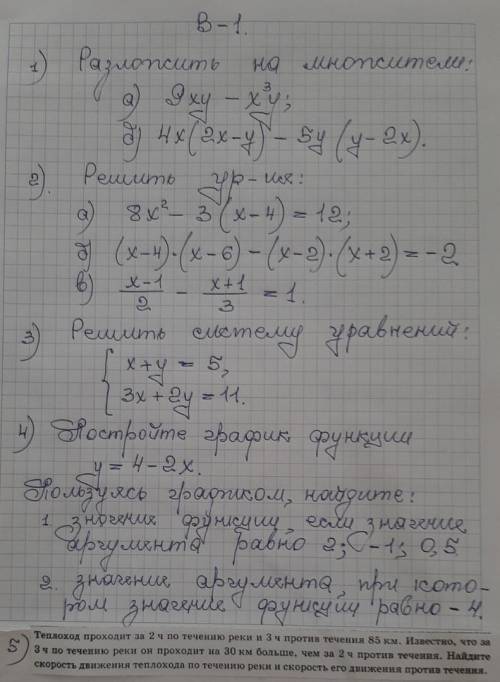 В-1.
1) Разложить на множители:
а) 9xy − x³y;
б) 4x(2x−y) − 5y(y−2x).
2). Решить ур-ия:
а) 8x² − 3(x−4) = 12;
б) (x−4)·(x−6) − (x−2)·(x+2) = −2
в) x−1/2 − x+1/3 = 1.
3) Решить систему уравнений:
{ x+y = 5,
3x+2y = 11.
4) Постройте график функции
y = 4−2x.
Пользуясь графиком, найдите:
1. значение функции, если значение
аргумента равно 2; −1; 0,5
2. значение аргумента, при кото-
ром значение функции равно −4.
5) Теплоход проходит за 2 ч по течению реки и 3 ч против течения 85 км. Известно, что за
3 ч по течению реки он проходит на 30 км больше, чем за 2 ч против течения. Найдите
скорость движения теплохода по течению реки и скорость его движения против течения.